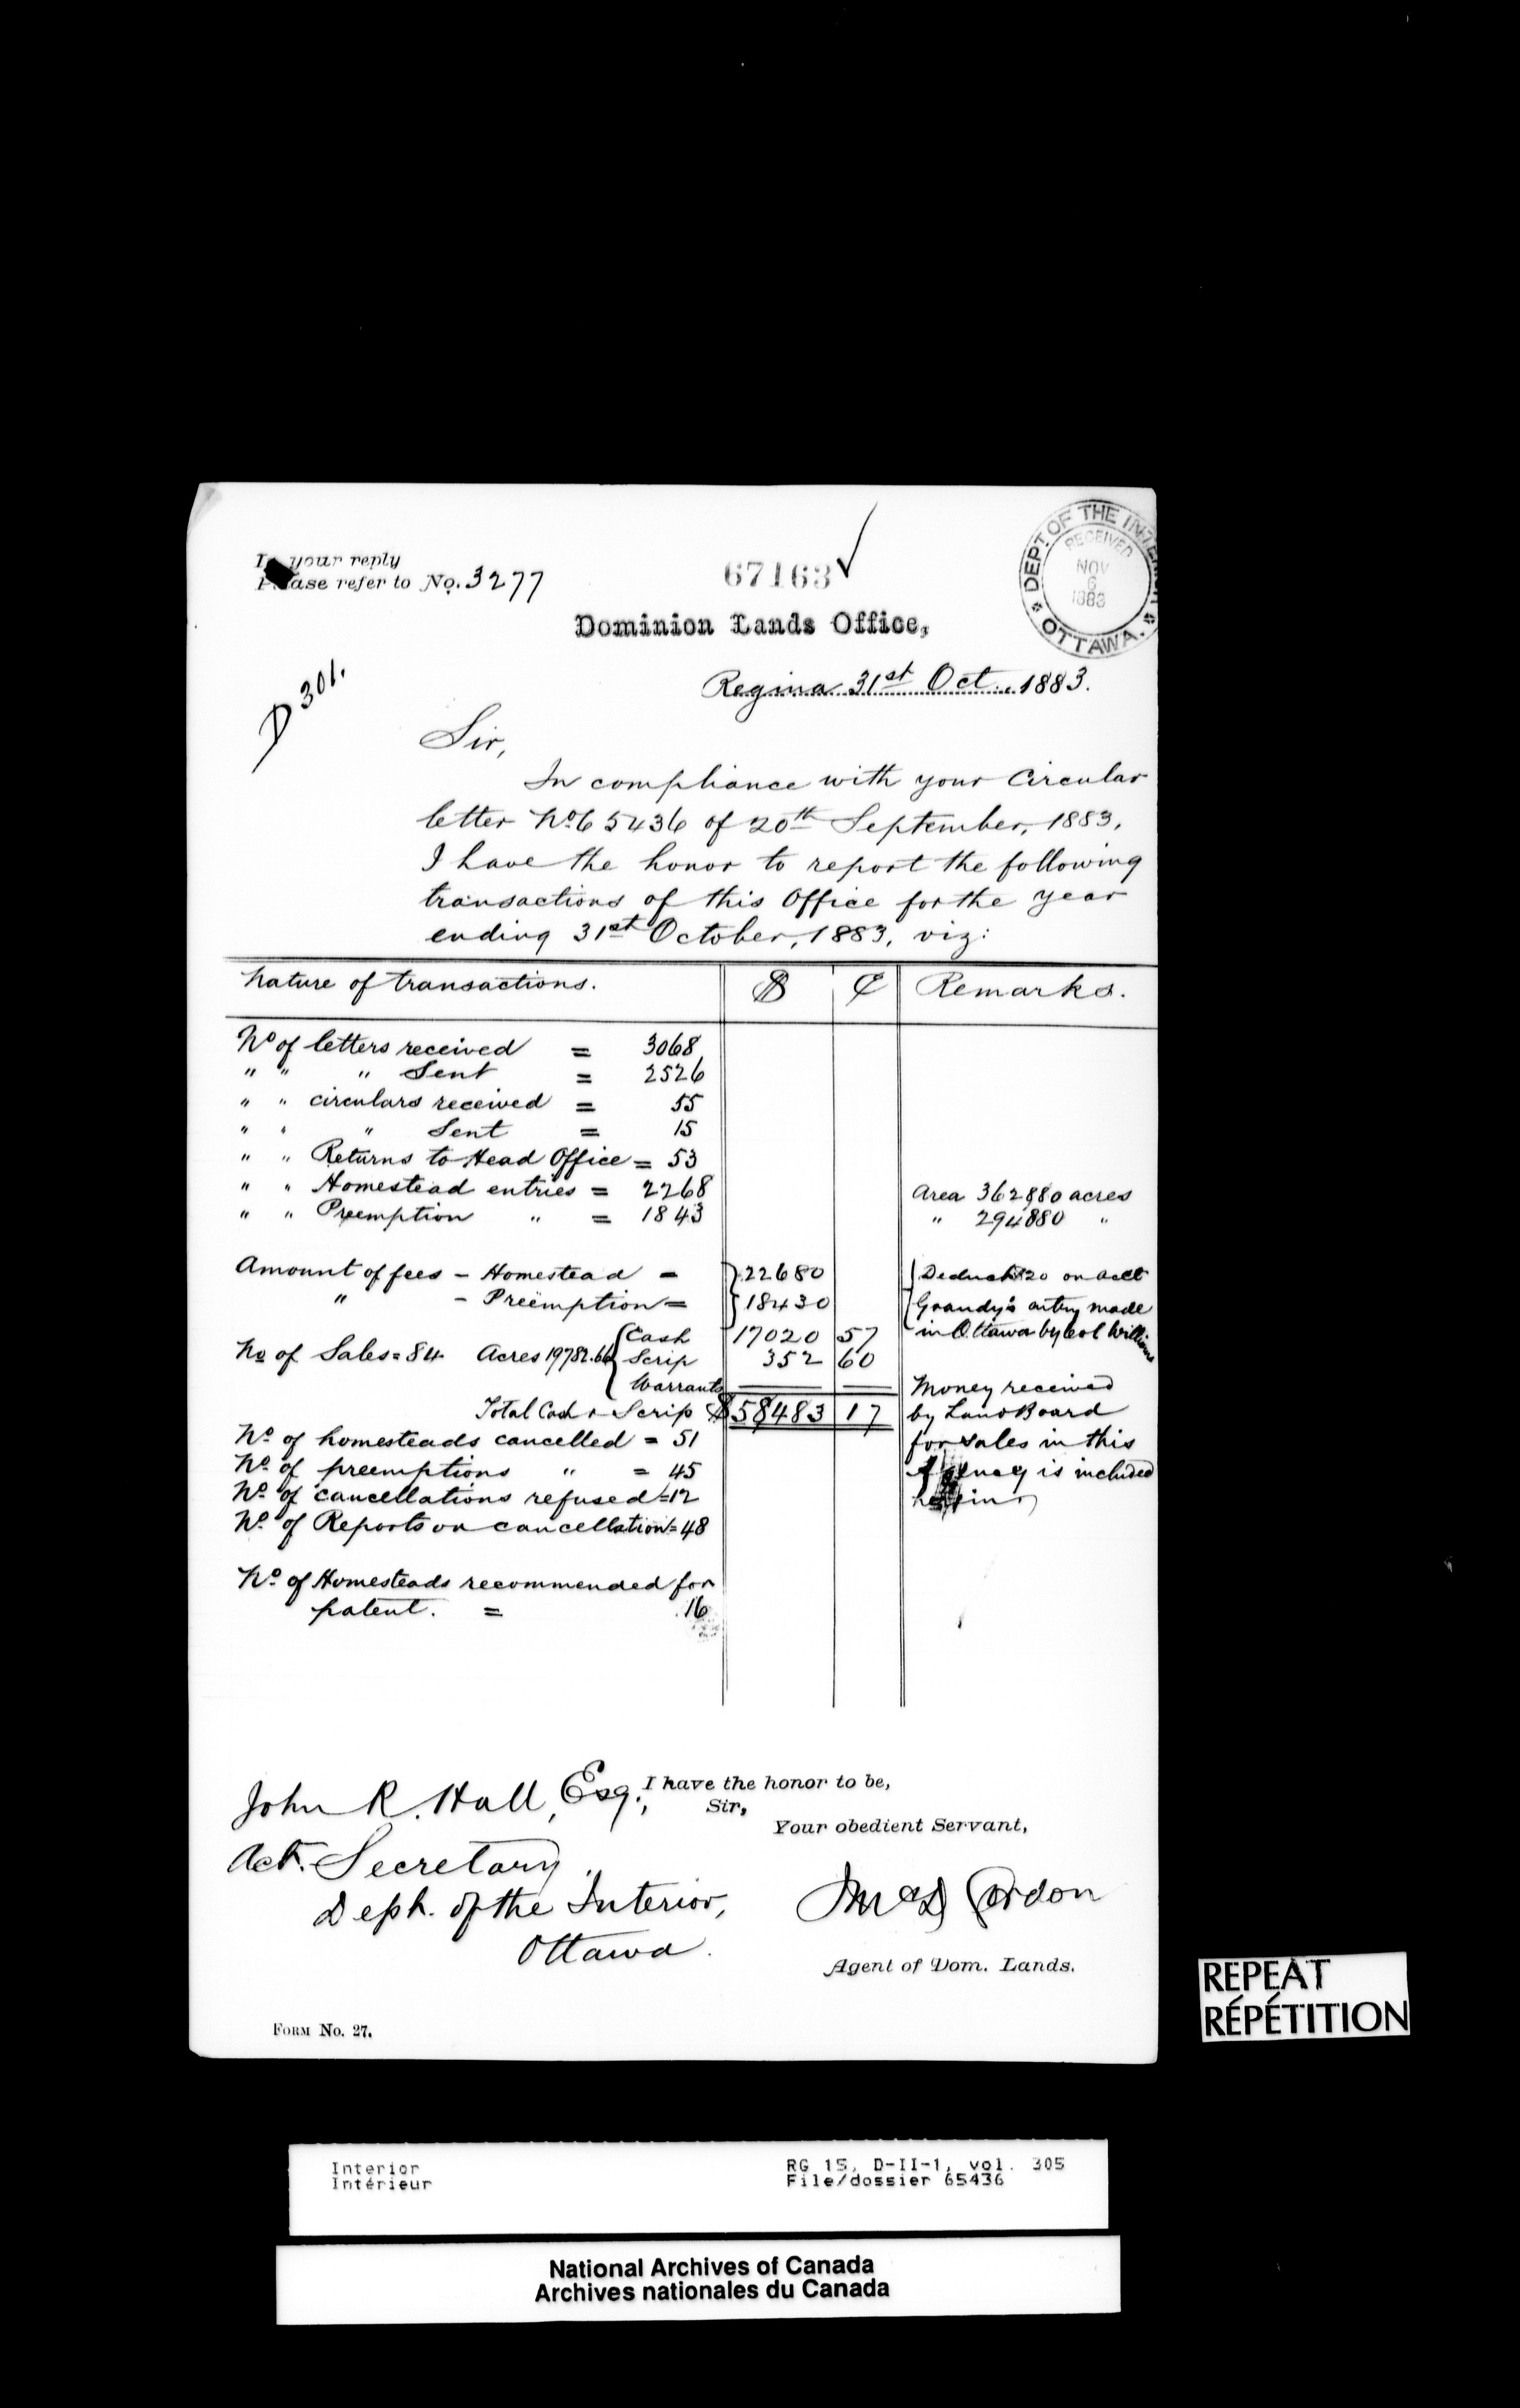 In your reply
Please refer to No. 3277
67163
DEPT. OF THE INTERIOR
RECEIVED
NOV
6
1883
OTTAWA.
Dominion Lands Office,
D 301.
Regina 31st Oct. 1883.
Sir,
In compliance with your Circular
letter No 65436 of 20th September, 1883,
I have the honor to report the following
transactions of this Office for the year
ending 31st October, 1883, viz:
Nature of transactions. $ ₵ Remarks.
No of letters received = 3068
" " " Sent = 2526
" " circulars received = 55
" " " Sent = 15
" " Returns to Head Office = 53
" " Homestead entries = 2268 Area 362880 acres
" " Preemption " = 1843 " 294880 "
Amount of fees - Homestead - 22680 Deduct $20 on acct
" - Preëmption = 18430 Grandy's entry made
Cash 17020 57 in Ottawa by Col Williams
No of Sales = 84 Acres 19782.66 Scrip 352 60
Warrants Money received
Total Cash & Scrip $58483 17 by Land Board
No. of homesteads cancelled = 51 for sales in this
No. of preemptions " = 45 Agency is included
No. of cancellations refused = 12 herein
No. of Reports on cancellation = 48
No. of Homesteads recommended for
patent. = 16
I have the honor to be,
John R. Hall, Esq., Sir,
Your obedient Servant,
Act. Secretary,
Dept. of the Interior,
Ottawa.
Gordon
Agent of Dom. Lands.
FORM No. 27.
REPEAT
RÉPÉTITION
Interior RG 15, D-II-1, vol. 305
Intérieur File/dossier 65436
National Archives of Canada
Archives nationales du Canada